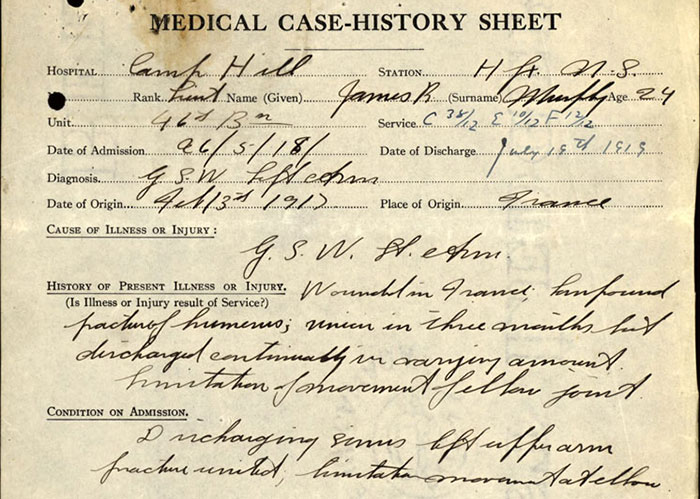 MEDICAL CASE-HISTORY SHEET
HOSPITAL Camp Hill STATION Hfx. N.S.
Rank Lieut Name (Given) James R (Surname) Murphy Age 24
Unit 46th Bn Service C 38/12 E 10/12 F 12/2
Date of Admission 26/5/18/ Date of Discharge July 19th 1919
Diagnosis G S W left Arm
Date of Origin Feb 13th 1917 Place of Origin France
CAUSE OF ILLNESS OR INJURY:
G. S. W. Arm.
HISTORY OF PRESENT ILLNESS OR INJURY. Wounded in France; Compound
(Is Illness or Injury result of Service?)
fracture of humerus; union in three months but
discharged continually in varying amount.
limitation of movement of elbow joint
CONDITION ON ADMISSION.
Discharging sinus left upper arm
fracture united; limitation movement at elbow